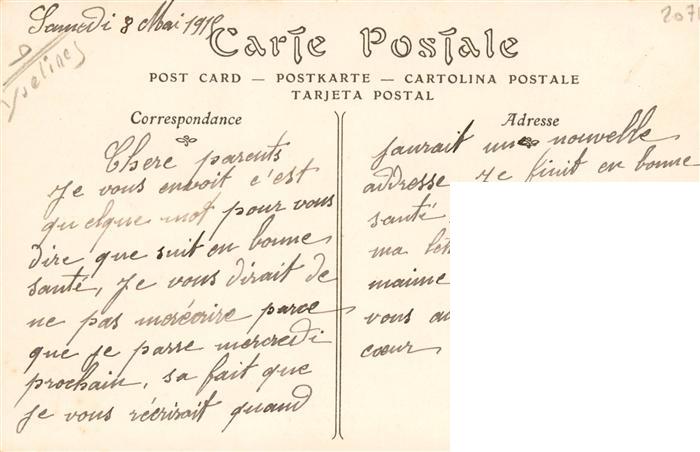 Samedi 8 Mai 1915
2071
Yvelines
Carte Postale
POST CARD — POSTKARTE — CARTOLINA POSTALE
TARJETA POSTAL
Correspondance
Chere parents
Je vous envoit c'est
quelque mot pour vous
dire que suit en bonne
santé, Je vous dirait de
ne pas morécrire parce
que je passe mercredi
prochain, sa fait que
je vous récrirait quand
Adresse
jaurait une nouvelle
addresse Je finit en bonne
santé
ma let
maime
vous
cœur